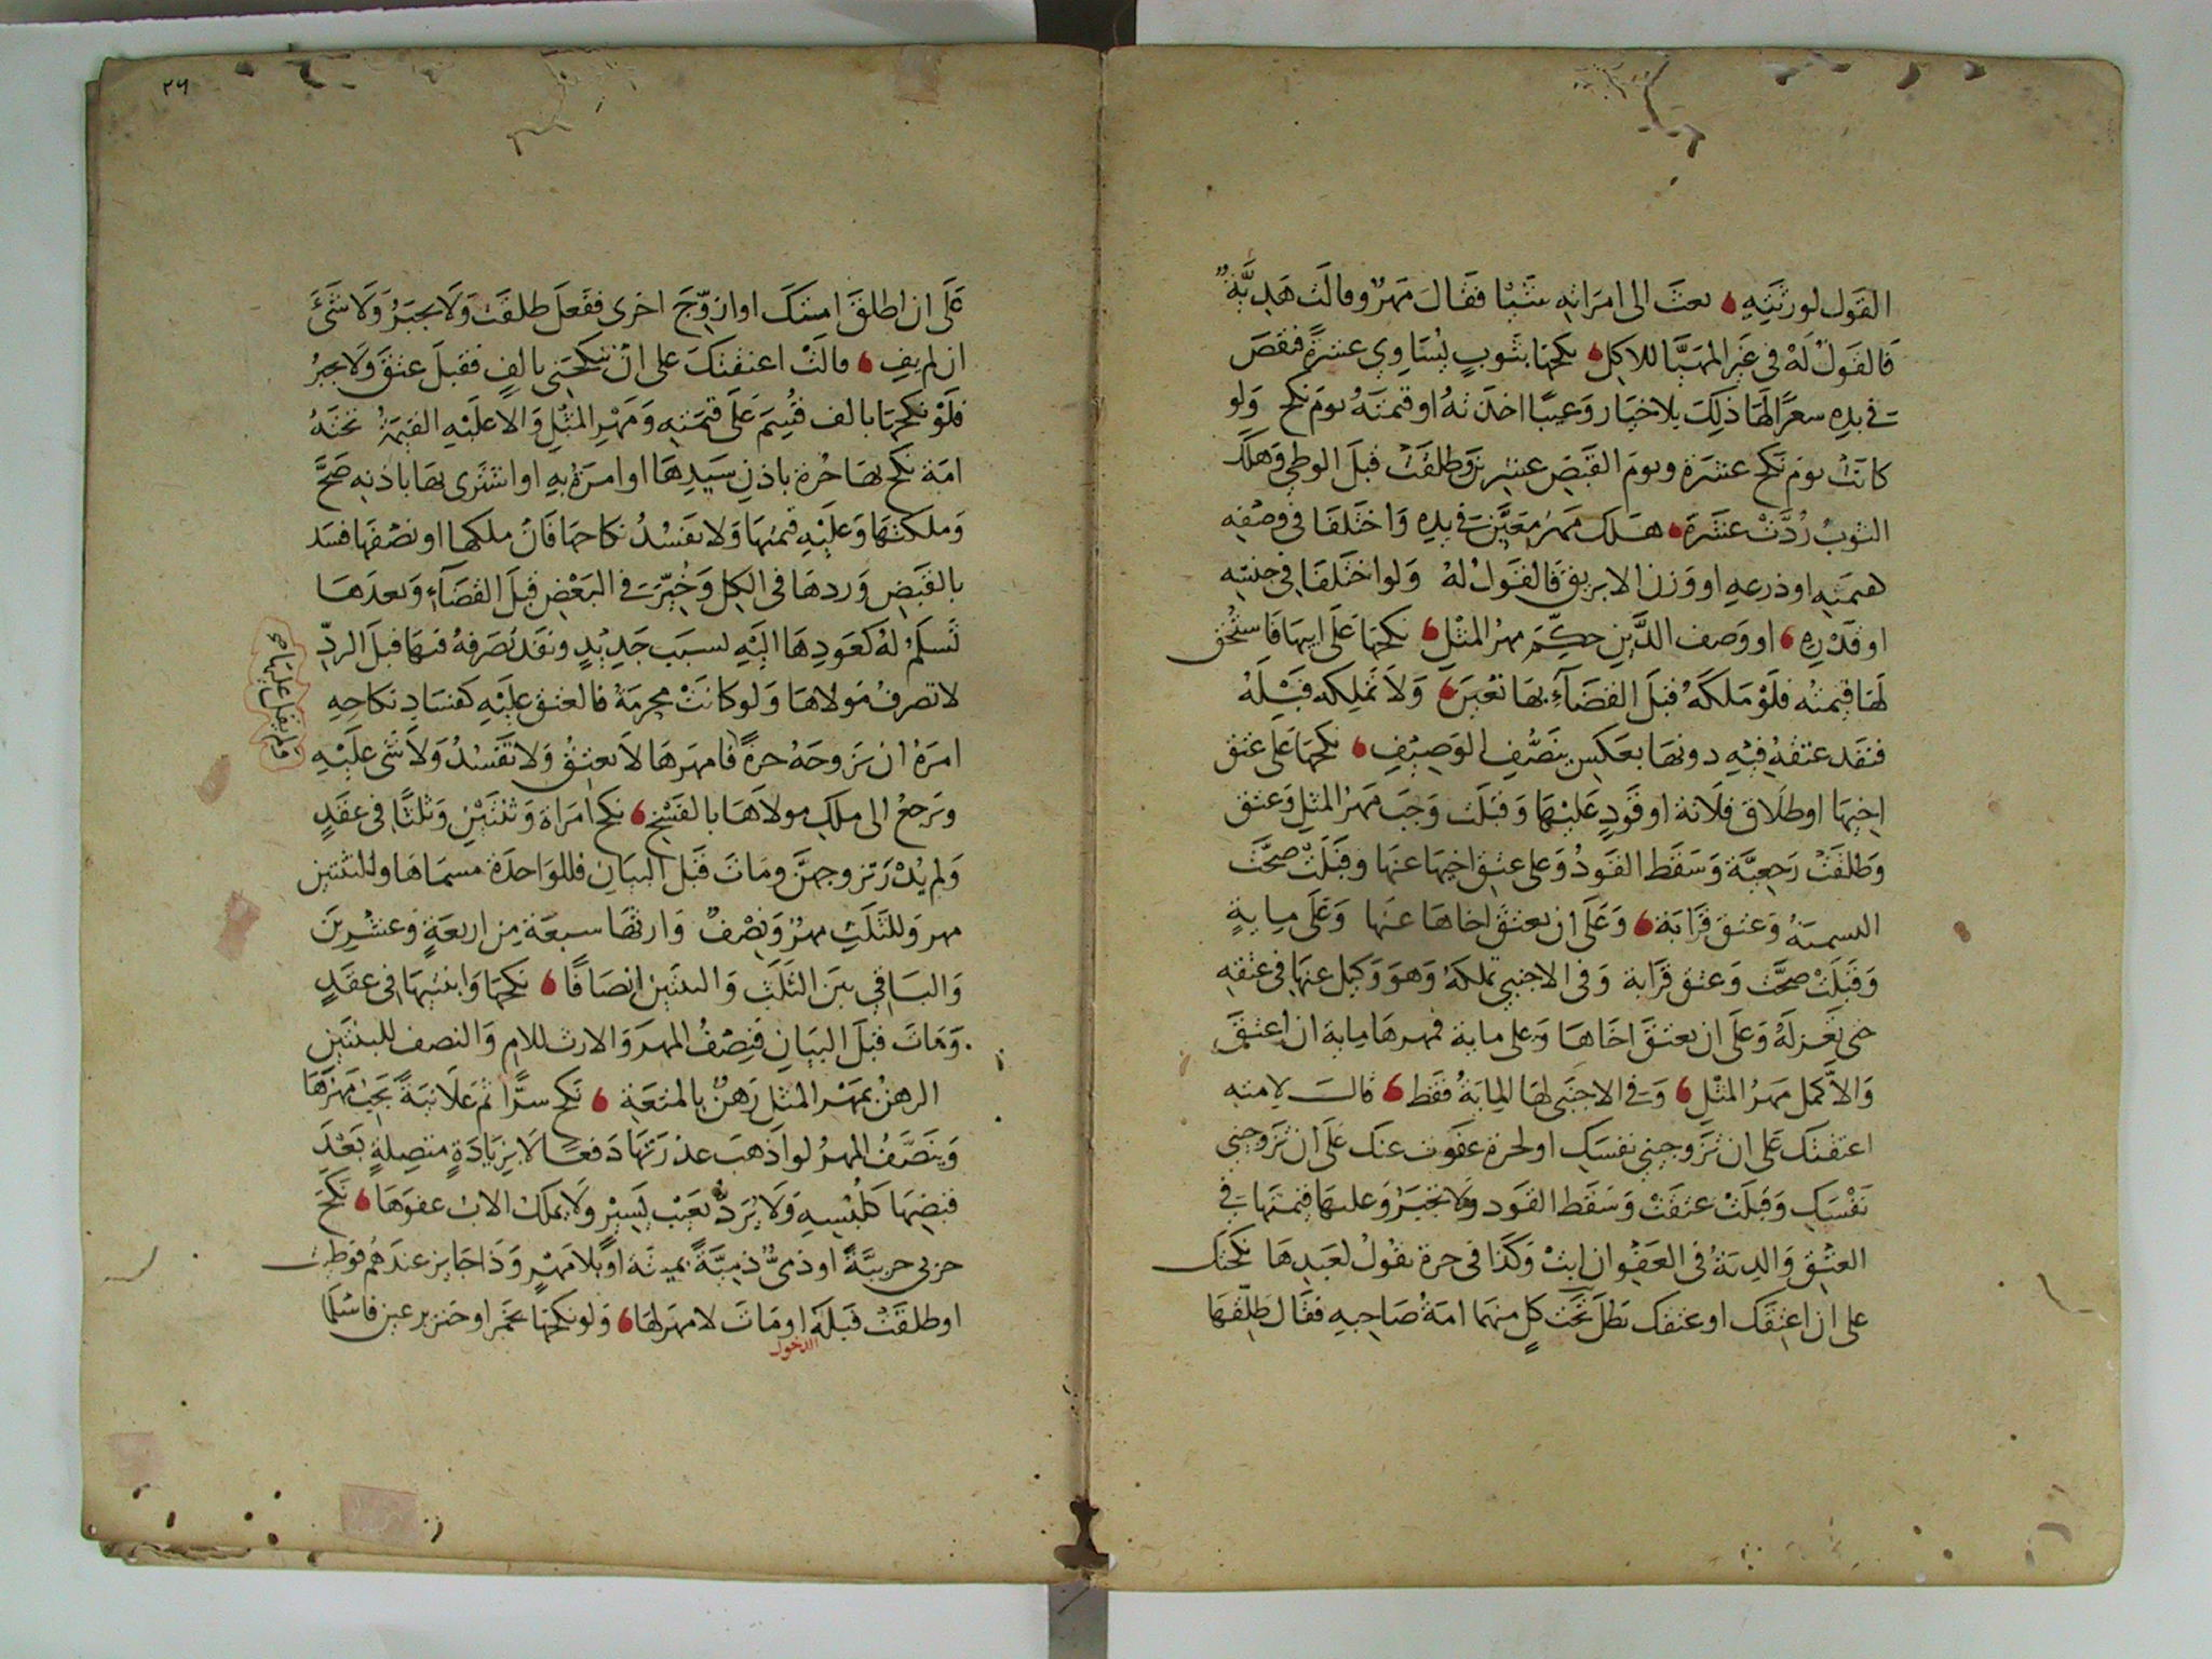 القول لورثته بعث الى امراته شيئا فقال مهر وقالت هدية
فالقول له في غير المهيا للاكل نكحها بثوب يساوي عشرة فنقص
في يده سعرا لها ذلك بلا خيار وعيبا اخذته او قيمته يوم نكح ولو
كانت يوم نكح عشرة ويوم القبض عشرين وطلقت قبل الوطي وهلك
الثوب ردت عشرة هلك مهر معين في يده واختلفا في وصفه
او ذرعه او وزن الابريق فالقول له ولو اختلفا في جنسه
او قدره او وصف الدين حكم مهر المثل نكحها على ابيها فاستحق
لها قيمته فلو ملكه قبل القضاء بها تعين ولا تملكه قبله
فنفذ عتقه فيه دونها بعكس بنصف الوصيف نكحها على عتق
اخيها او طلاق فلانة او قود عليها وقبلت وجب مهر المثل وعتق
وطلقت رجعية وسقط القود وعلى عتق اخيها عنها وقبلت صحت
التسمية وعتق قرابة وعلى ان يعتق اخاها عنها وعلى ماية
وقبلت صحت وعتق قرابة وفي الاجنبي تملكه وهو وكيل عنها في عتقه
حتى تعزله وعلى ان يعتق اخاها وعلى ماية فمهرها ماية ان اعتق
والا كمل مهر المثل وفي الاجنبي لها الماية فقط قالت لامته
اعتقتك على ان تزوجيني نفسك او لحرة عفوت عنك على ان تزوجيني
نفسك وقبلت عتقت وسقط القود ولا تجبر وعليها قيمتها في
العتق والدية في العفو ان ابت وكذا في حرة تقول لعبدها نكحتك
على ان اعتقك او عتقك بطل تحت كل منهما امة صاحبه فقال طلقها
٢٦
على ان اطلق امتك او ازوج اخرى ففعل طلقت ولا يجبر ولا شئ
ان لم يف قالت اعتقتك على ان تنكحني بالف فقبل عتق ولا يجبر
فلو نكحها بالف قسم على قيمته ومهر المثل والا عليه القيمة تحته
امة نكح بها حرة باذن سيدها او امره به او اشترى بها باذنه صح
وملكتها وعليه قيمتها ولا تفسد نكاحها فان ملكها او نصفها فسد
بالقبض وردها في الكل وخيرت في البعض قبل القضاء وبعدها
تسلم له كعودها اليه لسبب جديد ونفذ تصرفه فيها قبل الرد
لا تصرف مولاها ولو كانت محرمة فالعتق عليه كفساد نكاحه
امره ان تزوجه حرة فامهرها لا يعتق ولا تفسد ولا شئ عليه
وترجع الى ملك مولاها بالفسخ نكح امراة وثنتين وثلثا في عقد
ولم يدر تزوجهن ومات قبل البيان فللواحدة مسماها وللثنتين
مهر وللثلث مهر ونصف وارثها سبعة من اربعة وعشرين
والباقي بين الثلث والثنتين انصافا نكحها وابنتيها في عقد
ومات قبل البيان فنصف المهر والارث للام والنصف للبنتين
الرهن بمهر المثل رهن بالمتعة نكح سرا ثم علانية يجب مهرها
وينصف المهر لو اذهب عذرتها دفعا لا بزيادة متصلة بعد
قبضها كلبسه ولا يرد بعيب يسير ولا يملك الاب عفوها نكح
حربي حربية او ذمي ذمية بميتة او بلا مهر وذا جايز عندهم فوطئت
او طلقت قبله او مات لا مهر لها ولو نكحها بخمر او خنزير عين فاسلما
الدخول